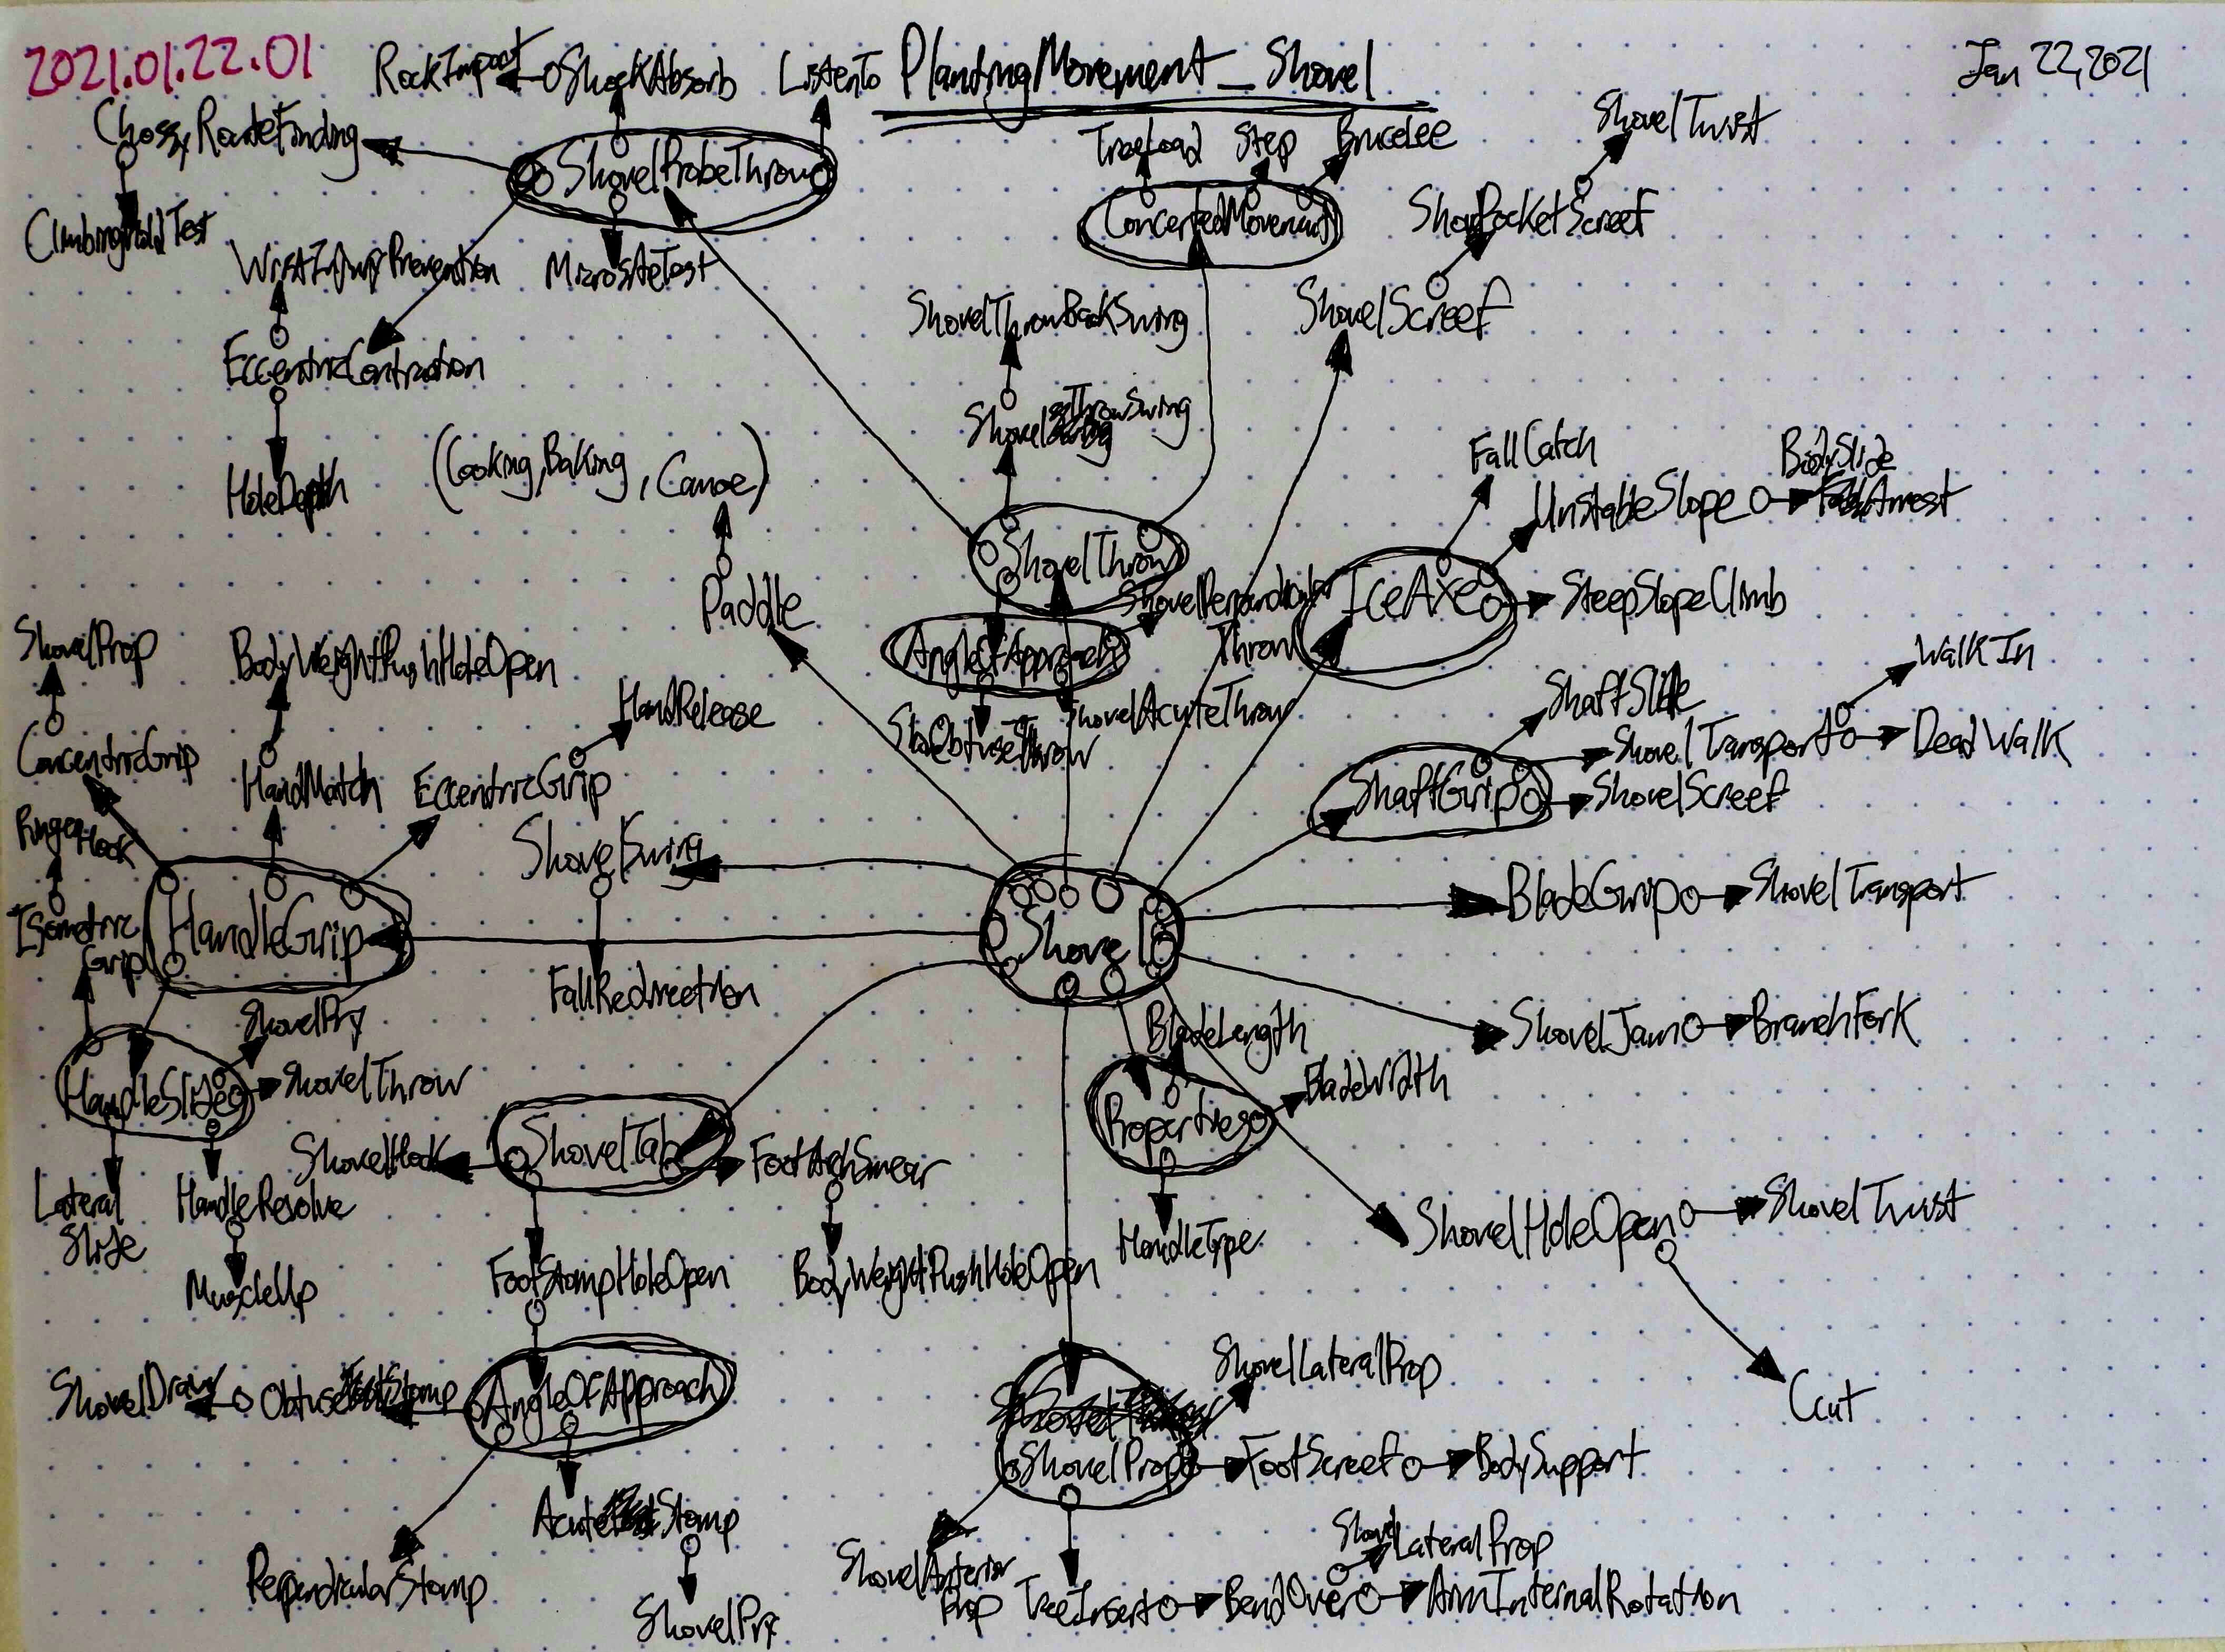 2021.01.22.01
PlantingMovement_Shovel
Jan 22,2021
RockImpact
ShockAbsorb
ListenTo
ChossyRouteFinding
ShovelProbeThrow
ClimbingHoldTest
WristInjuryPrevention
MicrositeTest
TreeLoad
Step
BruceLee
ConcertedMovement
ShovelTwist
ShovPocketScreef
ShovelScreef
ShovelThrowBackSwing
EccentricContraction
HoleDepth
(Cooking, Baking, Canoe)
ThrowSwing
Shovel
FallCatch
UnstableSlope
BodySlide
Arrest
ShovelThrow
IceAxe
SteepSlopeClimb
Paddle
ShovelPerpendicular
Throw
AngleOfApproach
ShovelAcuteThrow
ShoObtuseThrow
ShovelProp
BodyWeightPushHoleOpen
HandRelease
ConcentricGrip
HandMatch
EccentricGrip
ShaftSlide
WalkIn
ShovelTransport
DeadWalk
ShaftGrip
ShovelScreef
FingerHook
ShovelSwing
BladeGrip
ShovelTransport
Isometric
Grip
HandleGrip
Shovel
FallRedirection
ShovelPry
BladeLength
ShovelJam
BranchFork
HandleSlide
ShovelThrow
Properties
BladeWidth
ShovelHook
ShovelTab
FootArchSmear
Lateral
Slide
HandleResolve
MuscleUp
FootStampHoleOpen
BodyWeightPushHoleOpen
HandleType
ShovelHoleOpen
ShovelTwist
Ccut
ShovelDraw
Obtuse
Stomp
AngleOfApproach
ShovelLateralProp
ShovelProp
FootScreef
BodySupport
Acute
Stomp
PerpendicularStomp
ShovelPry
ShovelAnterior
Prop
TreeInsert
BendOver
ShovelLateralProp
ArmInternalRotation